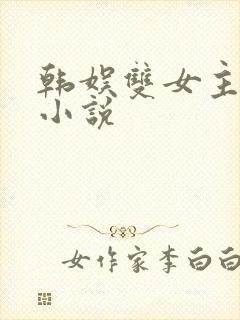 韩娱雙女主
小說
女作家李白白